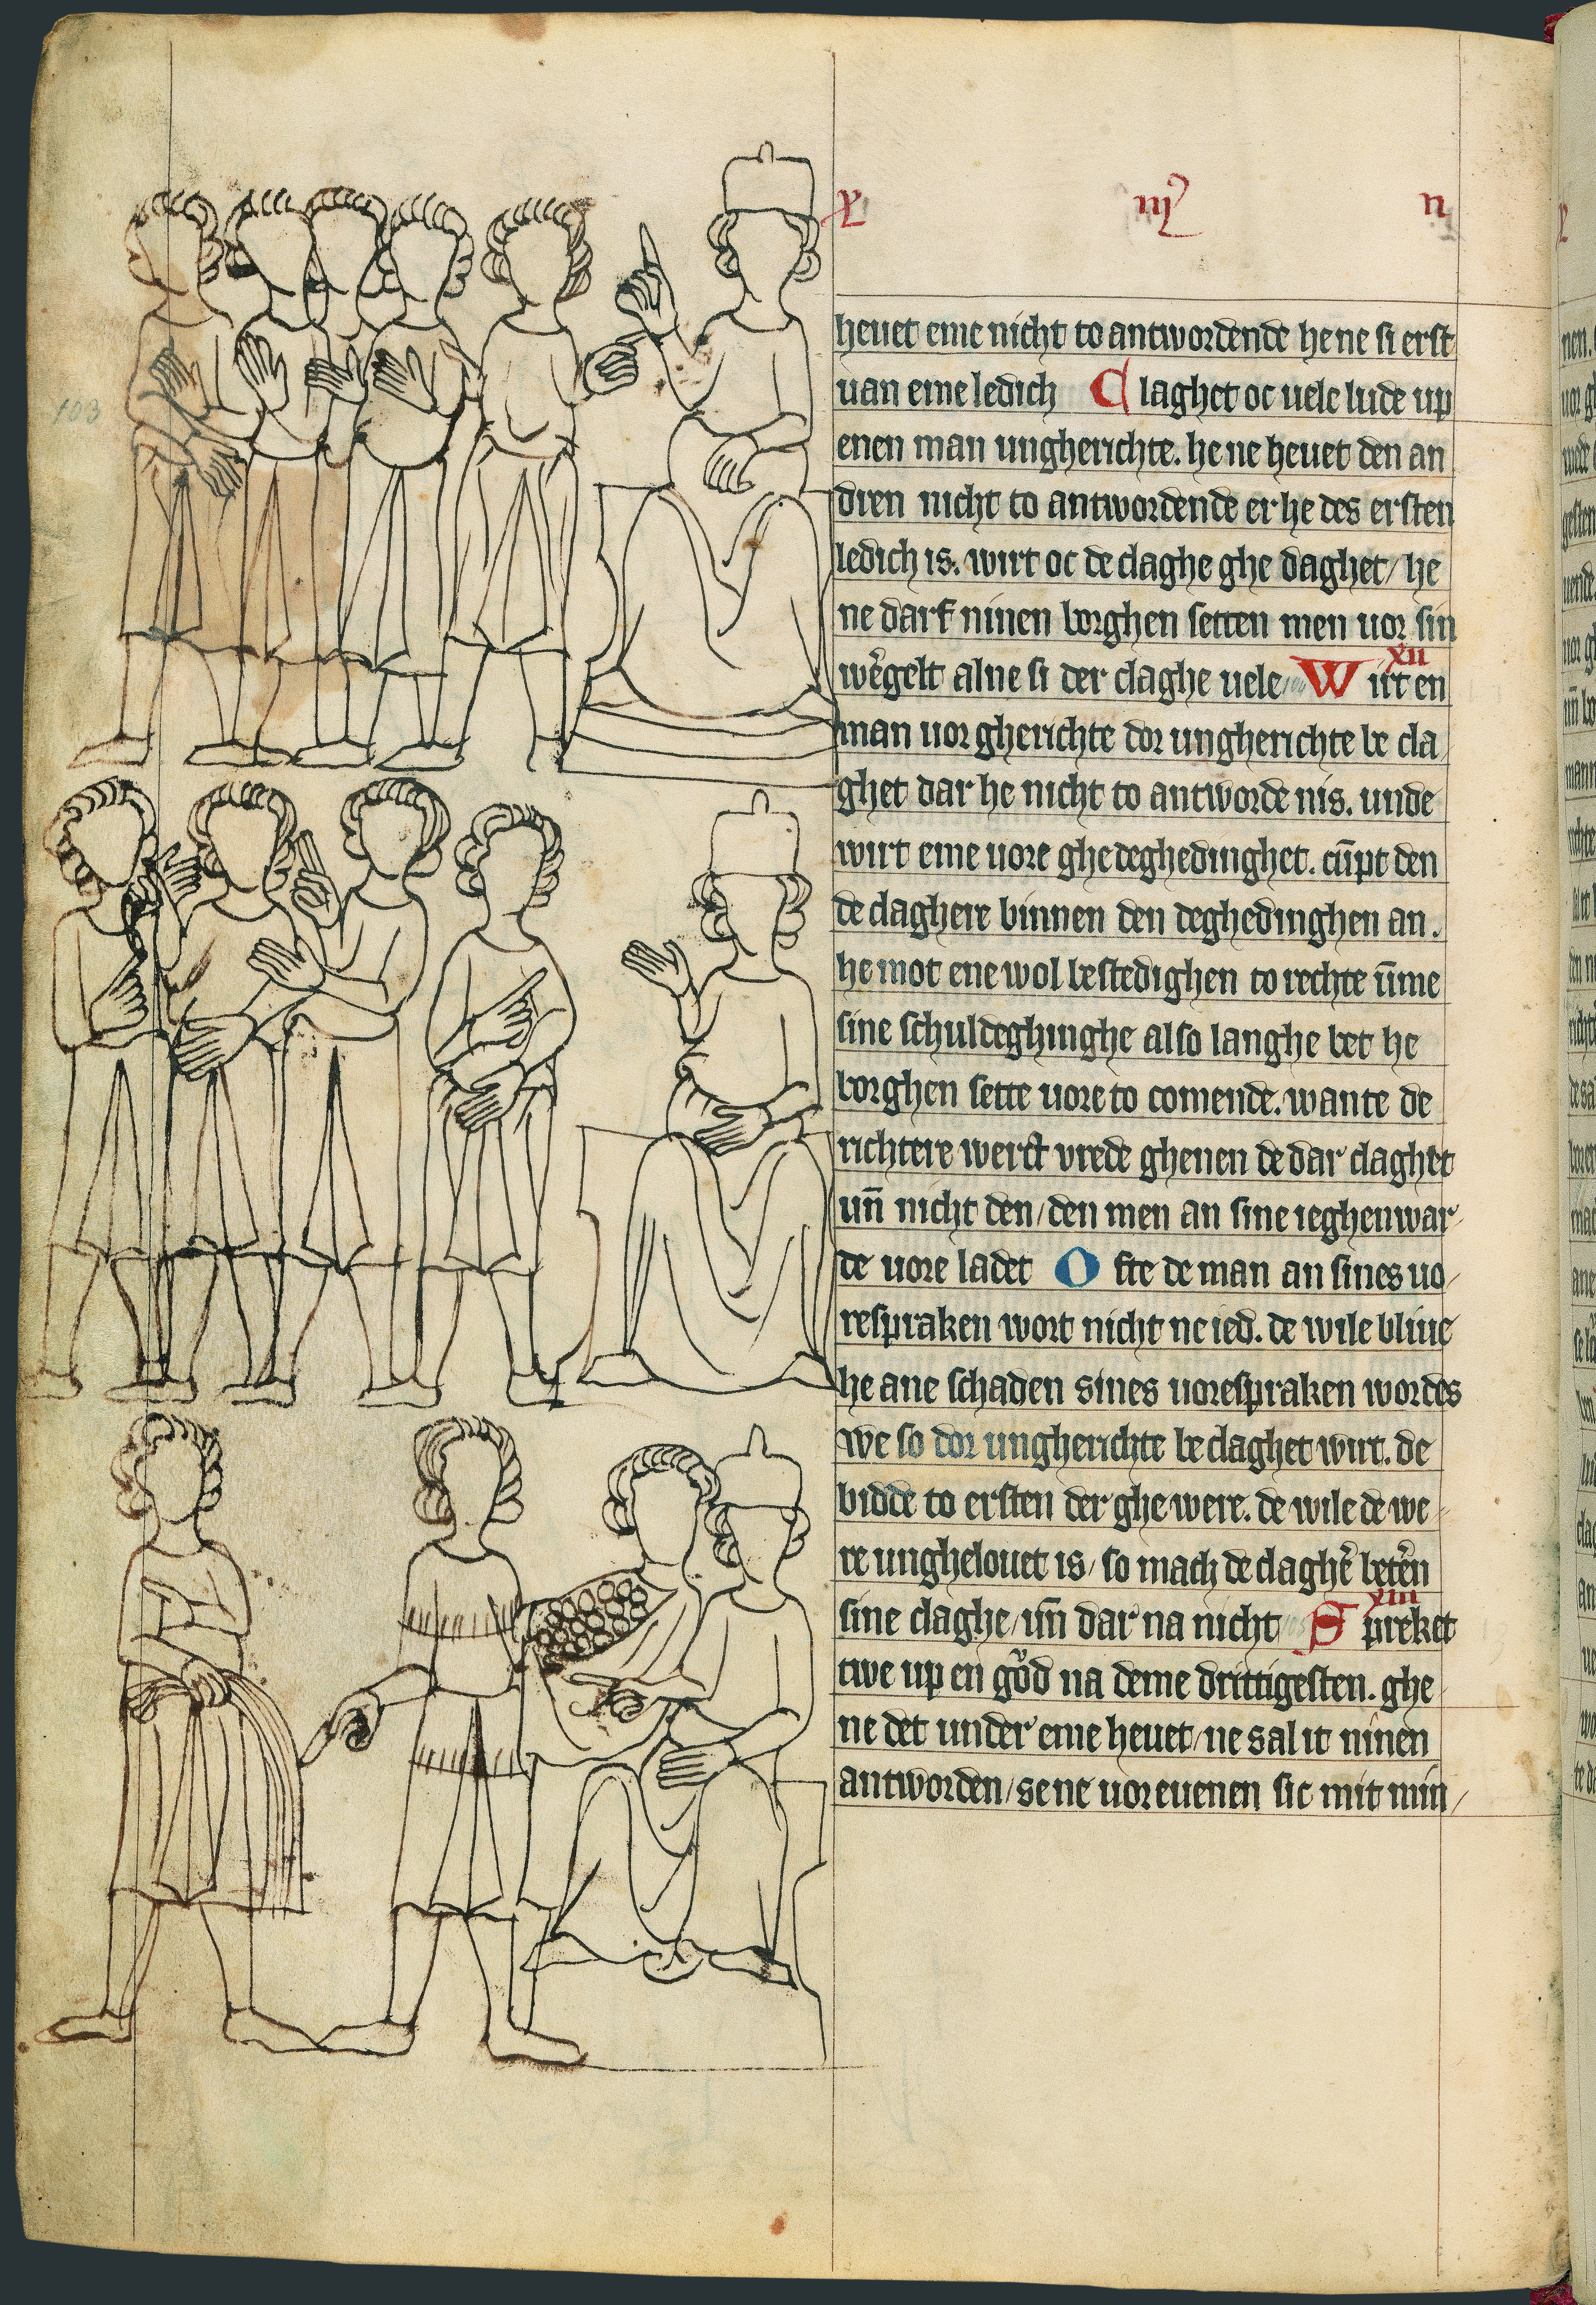 heuet eme nicht to antwordende he ne si erst
uan eme ledich Claghet oc uele lude up
enen man ungherichte. he ne heuet den an
dren nicht to antwordende er he des ersten
ledich is. wirt oc de claghe ghe daghet/ he
ne darf ninen borghen setten men uor sin
wergelt alne si der claghe uele/ xii Wirt en
man uor gherichte dor ungherichte be cla
ghet dar he nicht to antworde nis. unde
wirt eme uore ghedeghedinghet. cūpt den
de claghere binnen den deghedinghen an.
he mot ene wol bestedighen to rechte ūme
sine schuldeghinghe also langhe bet he
borghen sette uore to comende. wante de
richtere werct vrede ghenen de dar claghet
un̄ nicht den/ den men an sine ieghenwar/
de uore ladet Ofte de man an sines uo/
respraken wort nicht ne ied. de wile bliue
he ane schaden sines uorespraken wordes
we so dor ungherichte beclaghet wirt. de
bidde to ersten der ghe were. de wile de we/
re unghelouet is/ so mach de clagher beteren
sine claghe/ un̄ dar na nicht xiii Spreket
twe up en gůd na deme drittigesten. ghe
ne det under eme heuet/ ne sal it ninen
antworden/ se ne uoreuenen sic mit min/
103